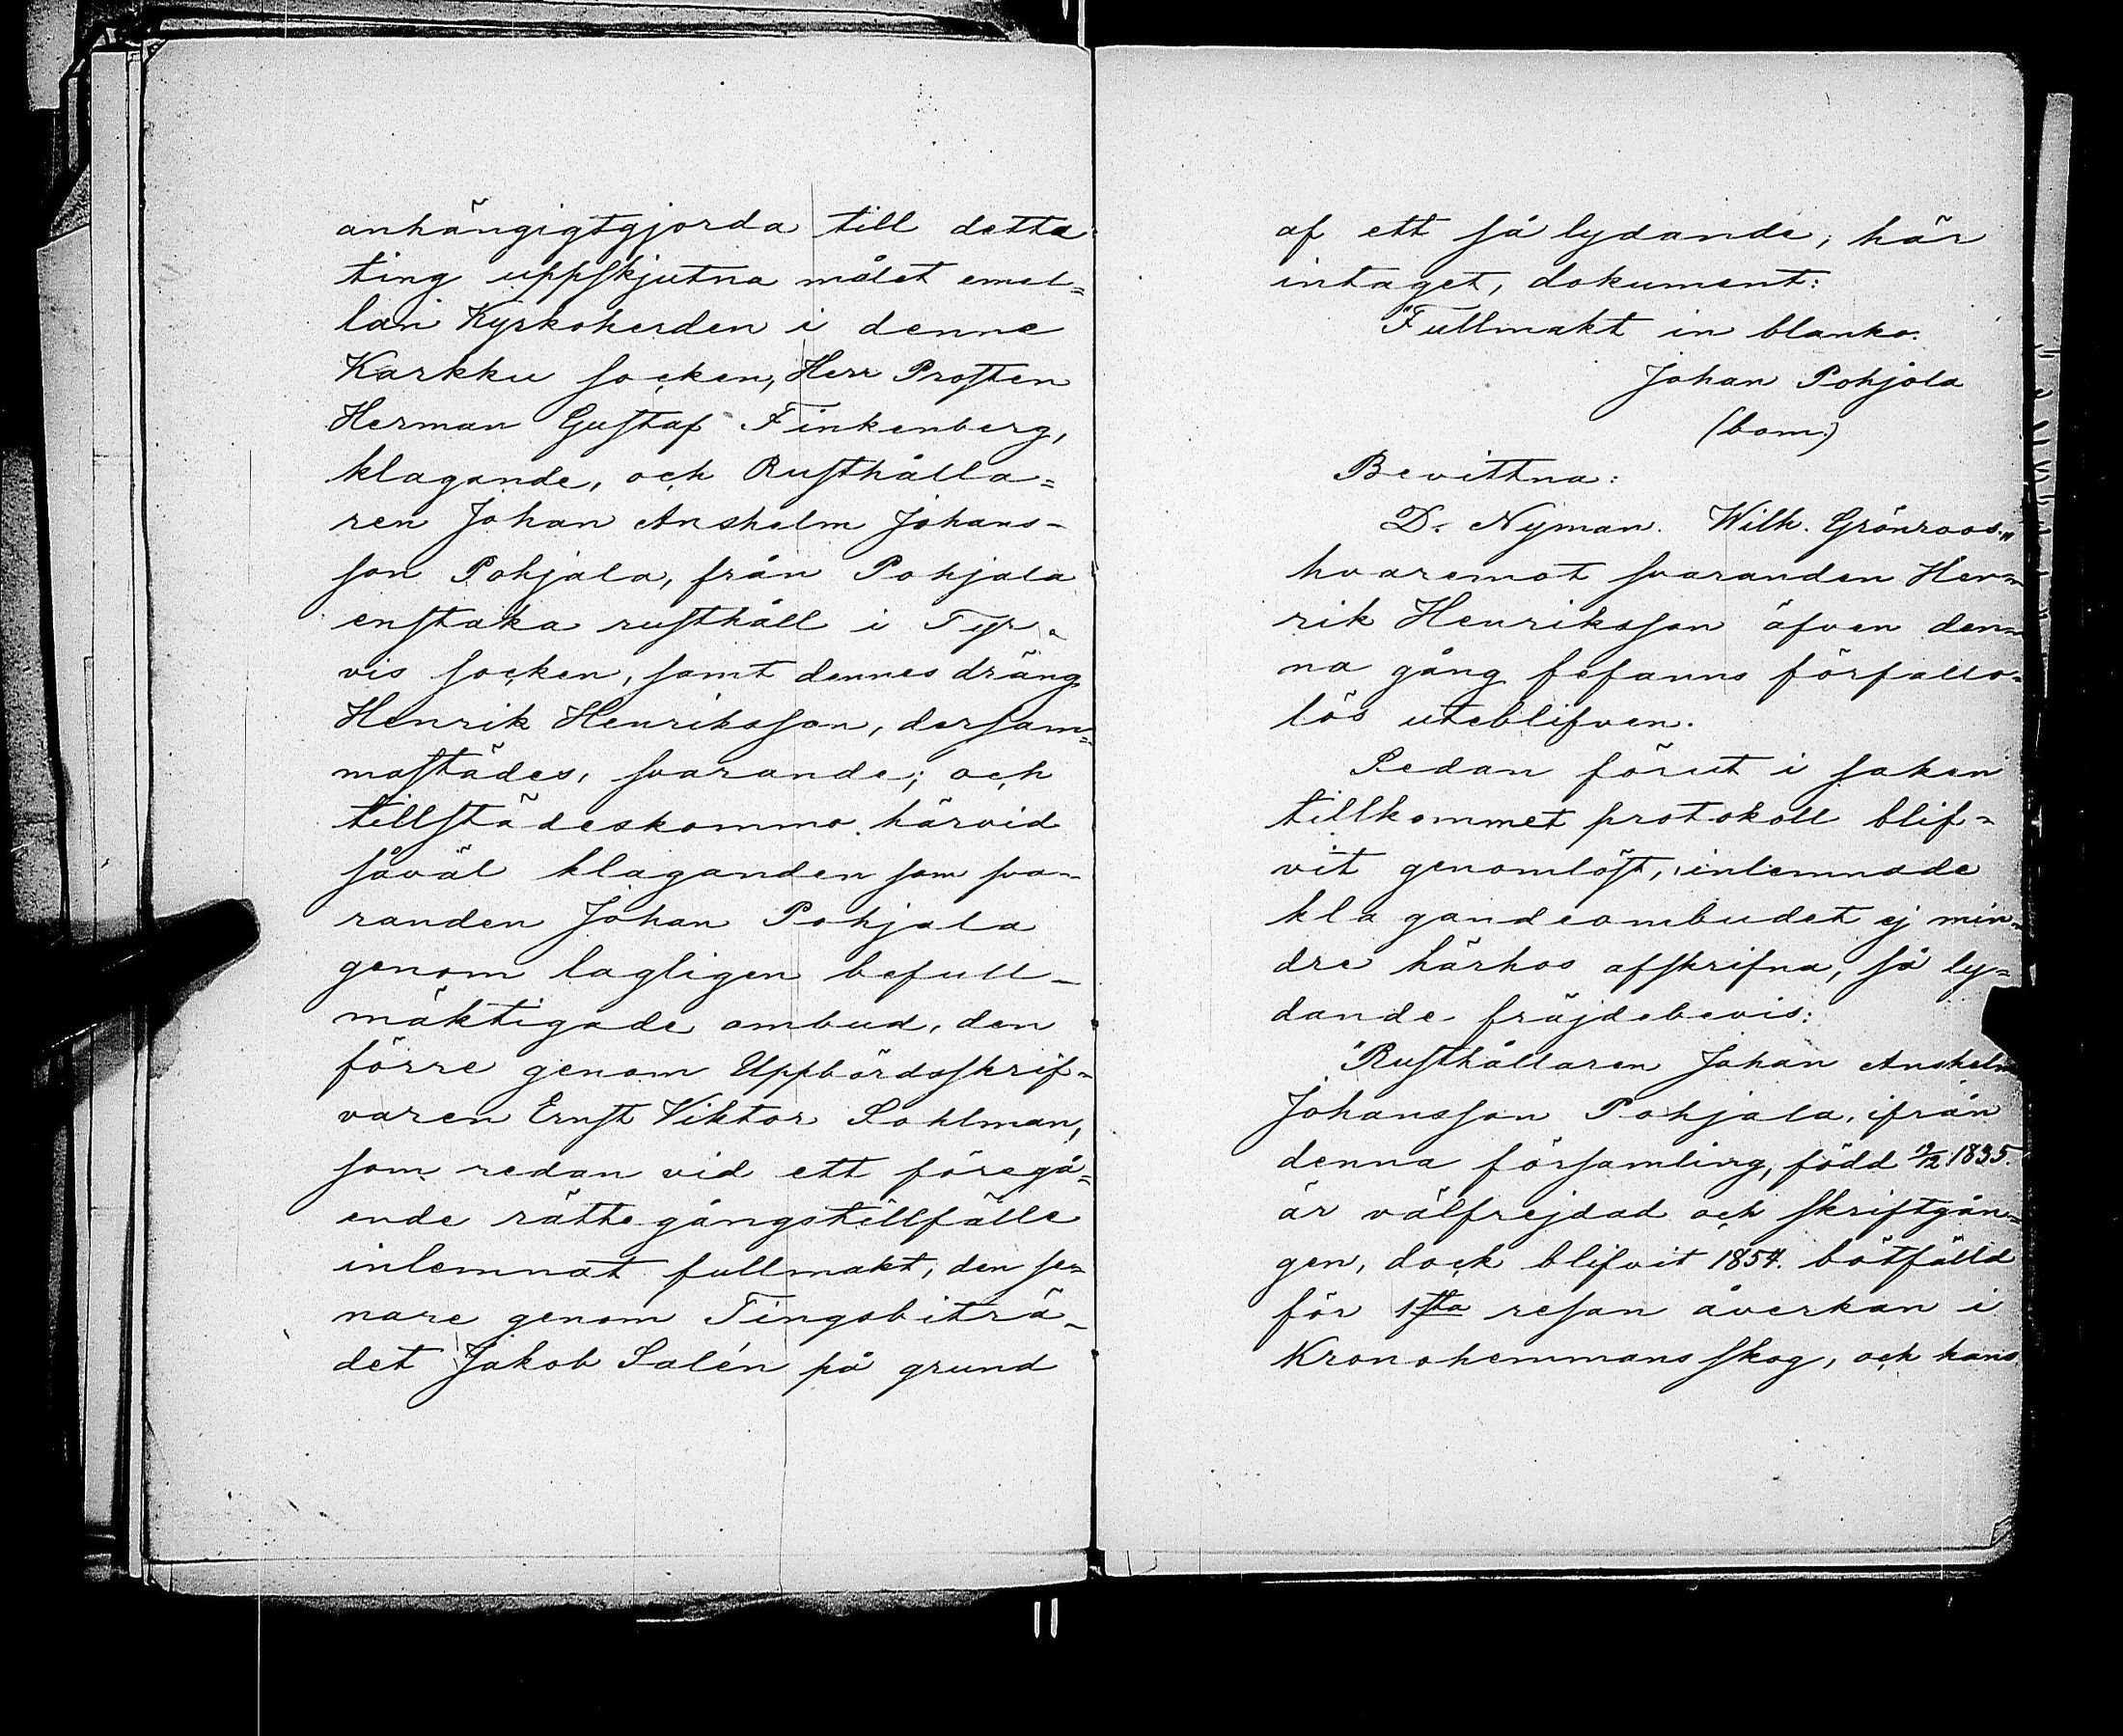 anhängigtgjorda till detta
ting uppskjutna målet emel=
lan Kyrkoherden i denne
Karkku socken, Herr Prosten
Herman Gustaf Finkenberg,
klagande, och Rusthålla=
ren Johan Anshelm Johans-
son Pohjala, från Pohjala
enstaka rusthåll i Tyr-
vis socken, samt dennes dräng
Henrik Henriksson, dersam=
mastädes, svarande; och
tillstädeskommo härvid
såväl klaganden som sva-
randen Johan Pohjala
genom lagligen befull-
mäktigade ombud, den
förre genom Uppbördsskrif-
varen Ernst Viktor Sohlman,
som redan vid ett föregå=
ende rättegångstillfälle
inlemnat fullmakt, den se-
nare genom Tingsbiträ-
det Jakob Salén på grund
af ett så lydande, här
intaget, dokument:
"Fullmakt in blanko.
Johan Pohjola
(bom.)
Bevittna:
D. Nyman. Wilh. Grönroos."
hvaremot svaranden Hen-
rik Henriksson äfven den-
na gång befanns förfallo-
lös uteblifven.
Sedan förut i saken
tillkommet protokoll blif-
vit genomläst, inlemnade
klagandeombudet ej min-
dre härhos afskrifna, så ly=
dande fräjdebevis:
"Rusthållaren Johan Anshelm
Johansson Pohjala, ifrån
denna församling, född 1835.
är välfrejdad och skriftgån=
gen, dock blifvit 1854. bötfälld
för 1sta resan åverkan i
Kronohemmans skog, och hans